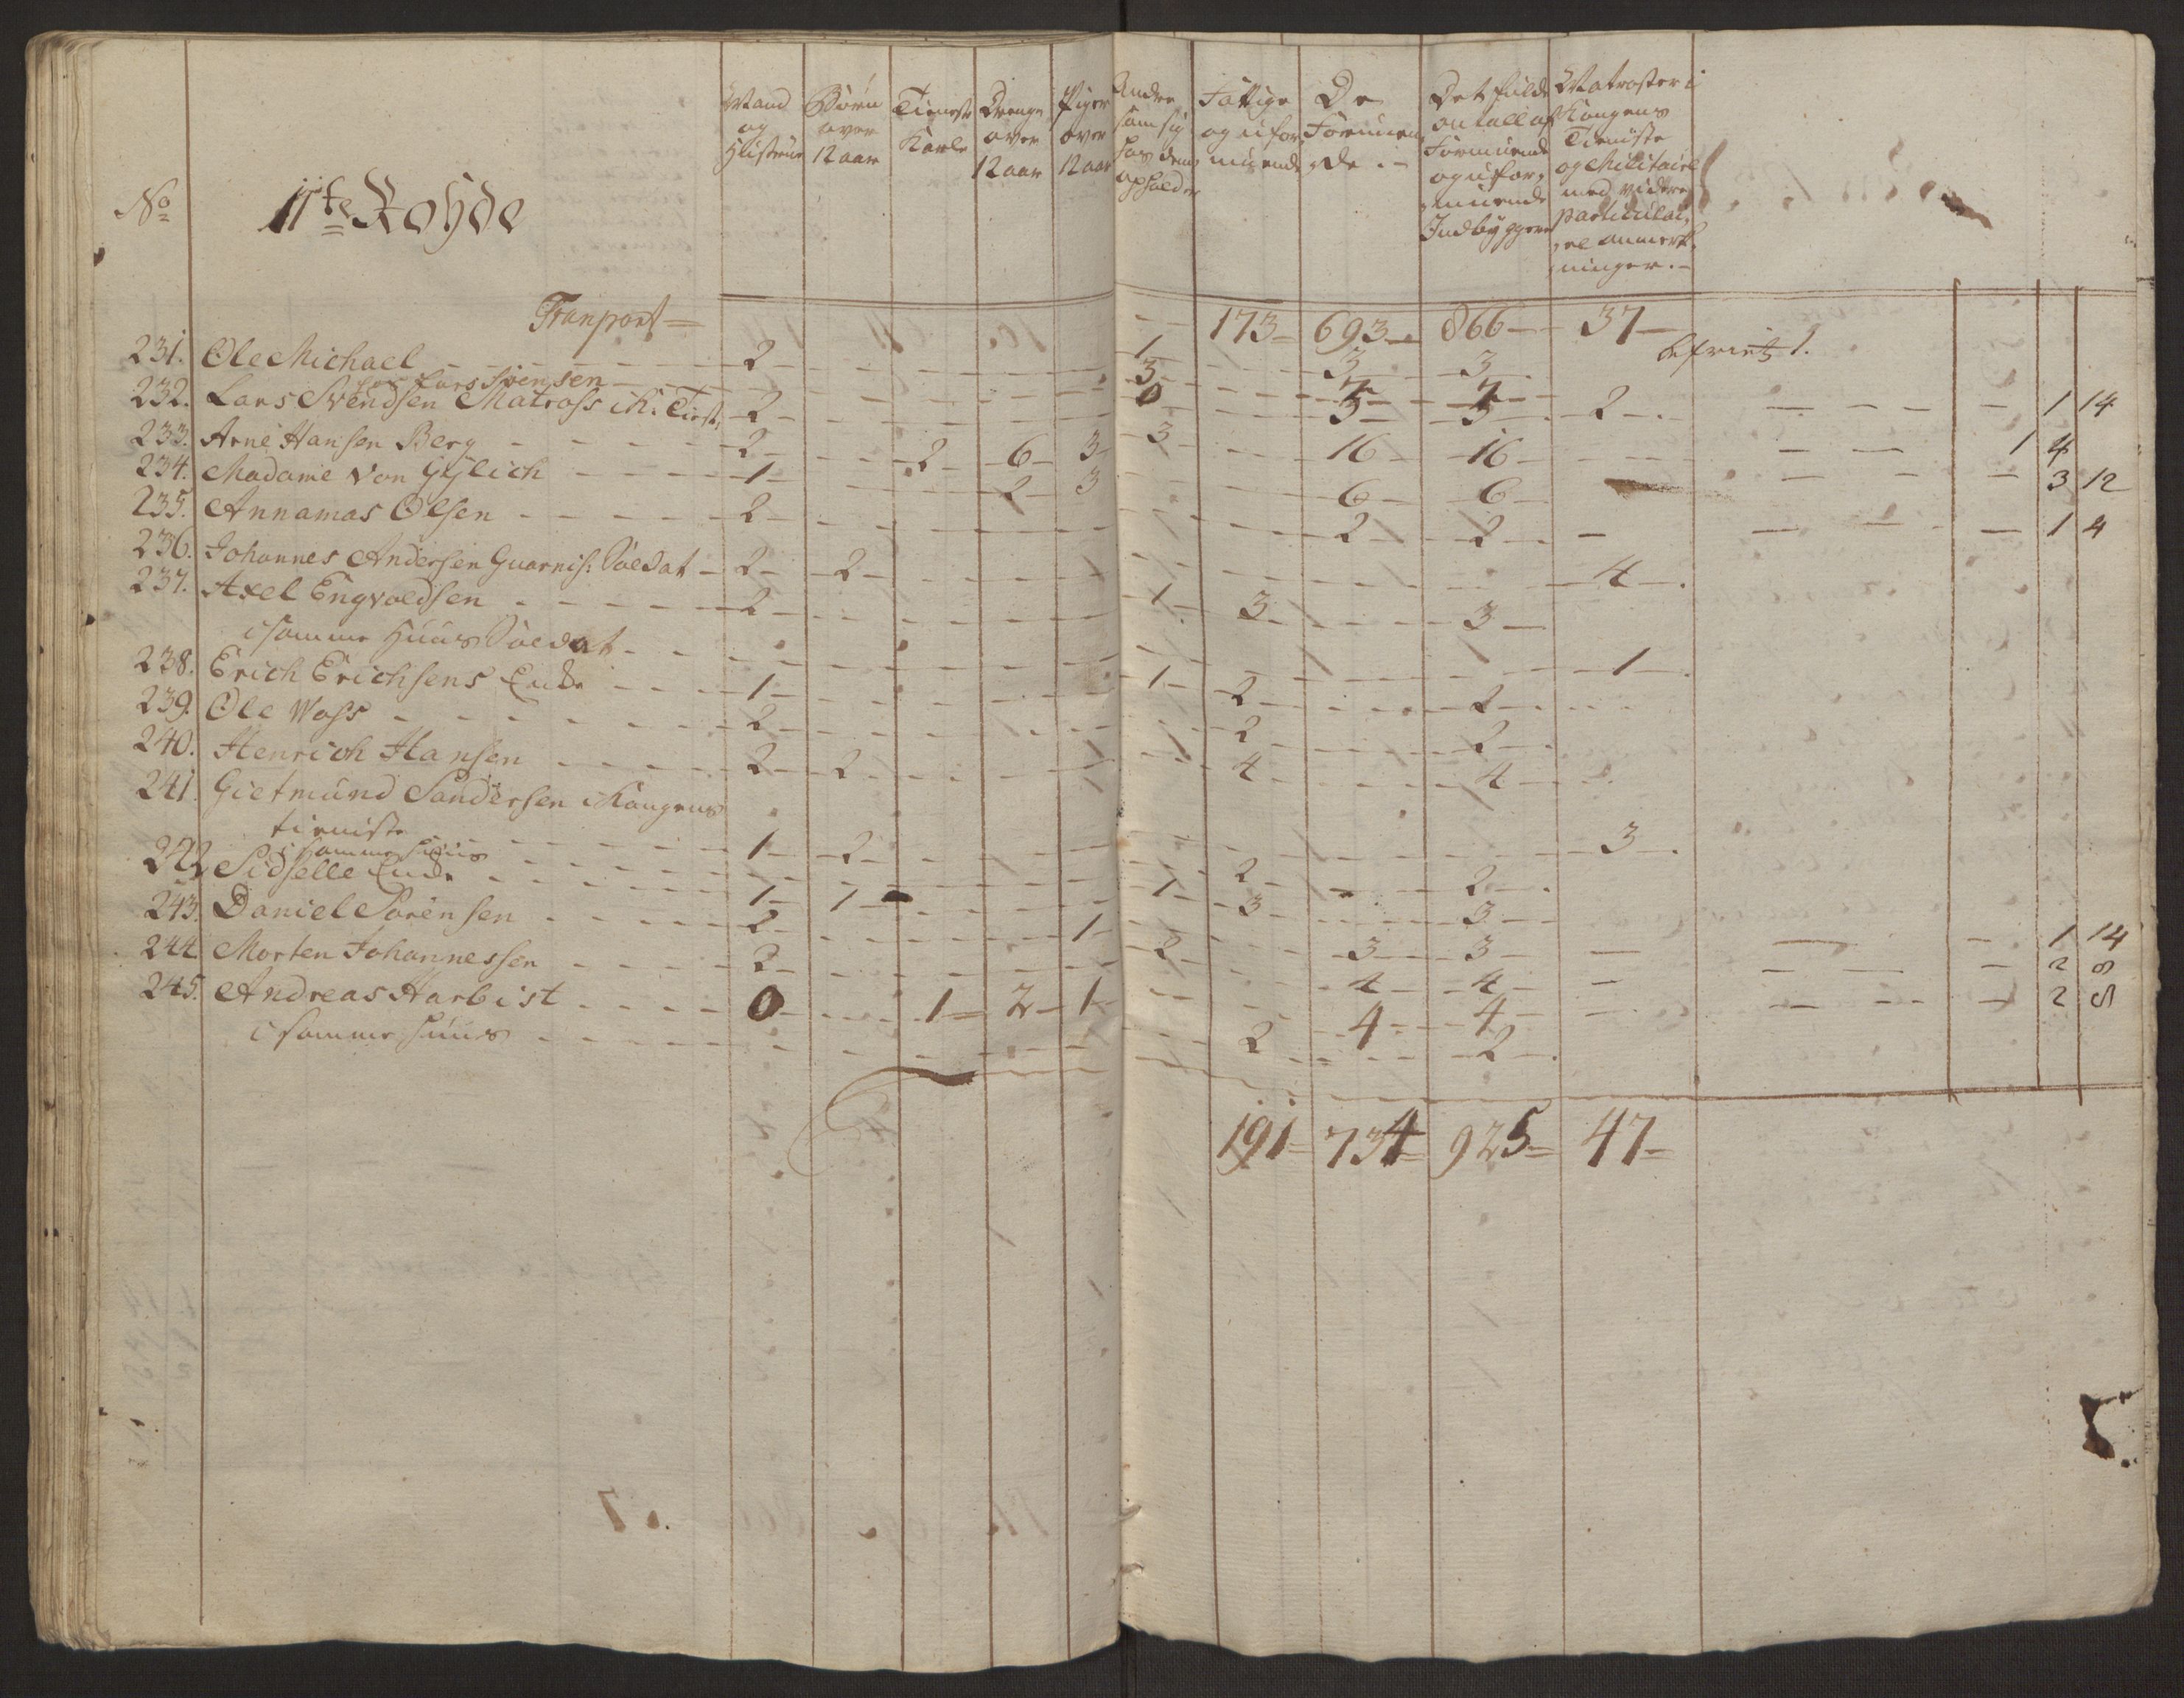 No
11te Rohde
Mand og Hustrue
Børn over 12 aar
Tieneste Karle
Drenge over 12 aar
Piger over 12 aar
Andre som sig hos dem opholder
Fattige og uformuende
De Formuende :-
Det fulde antall af Formuende og uformuende Indbyggere
Matroser i Kongens Tieniste og Militaire med videre particulaire anmerkninger.-
Tranport = 173 - 693 - 866 - 37 -
231. Ole Michael 2 - 1 - 3 - 3 befriet 1.
hos Lars Svensen 3 - 4 - 4
232. Lars Svendsen Matross i K: Tiest: 2 - 0 - 3 - 3 - 2 - 1 14
233. Arne Hansen Berg 2 - 2 - 6 - 3 - 3 - 16 - 16 - 1 4
234. Madame von Gylich 1 - 2 - 3 - 6 - 6 - 3 12
235. Annamas Olsen 2 - 2 - 2 - 1 4
236. Johannes Andersen Guarnis: Soldat - 2 - 2 - 4 -
237. Axel Engvoldsen 2 - 1 - 3 - 3 -
i samme Huus Soldat - 1 -
238. Erich Erichsens Enke 1 - 1 - 2 - 2 -
239. Ole Voss 2 - 2 - 2 -
240. Henrich Hansen 2 - 2 - 4 - 4 -
241. Gietmund Sandersen i Kongens
tieniste 1 - 2 - 3 -
i samme Huus 2 - 2 -
242 Sidselle Enke 1 - 1 - 1 - 3 - 3 -
243. Daniel Sørensen 2 - 1 - 3 - 3 - 1 14
244 Morten Johannessen 2 - 2 - 4 - 4 - 2 8
245. Andreas Harbist 0 - 1 - 2 - 1 - 4 - 4 - 2 8
i samme Huus 2 - 2 -
191 - 734 = 925 = 47 -